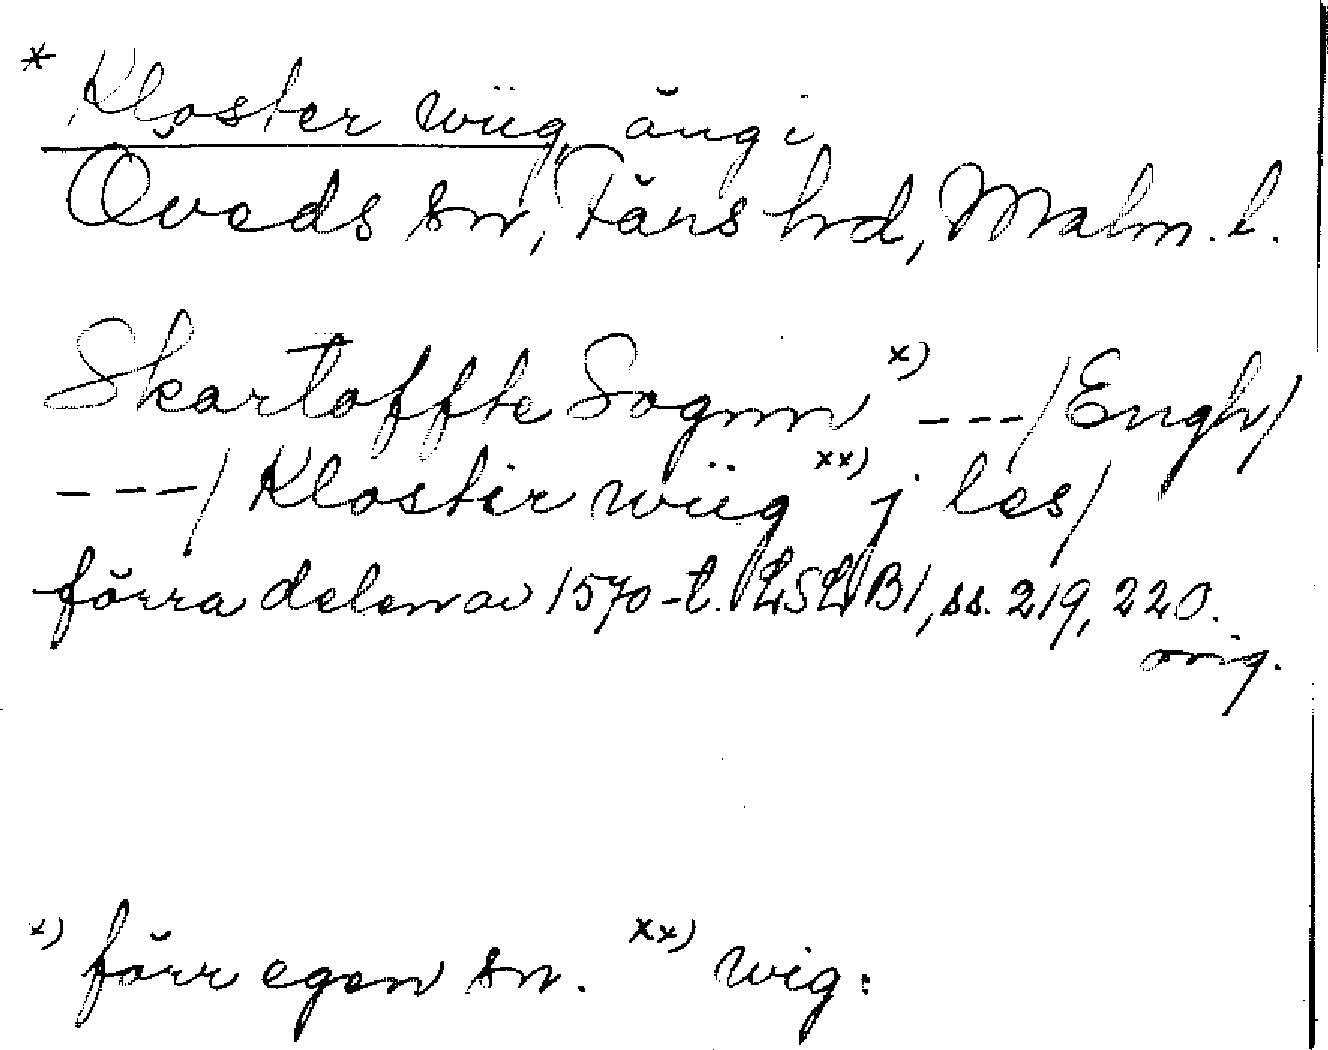 * Kloster wiig, äng i
Öveds sn, Färs hrd, Malm. l.
Skartoffte Sognn x) ---/Engh/
---/ Kloster wiig xx) j les/
förra delen av 1570-t. LSLB1, ss. 219, 220.
orig.
x) förr egen sn. xx) wig: